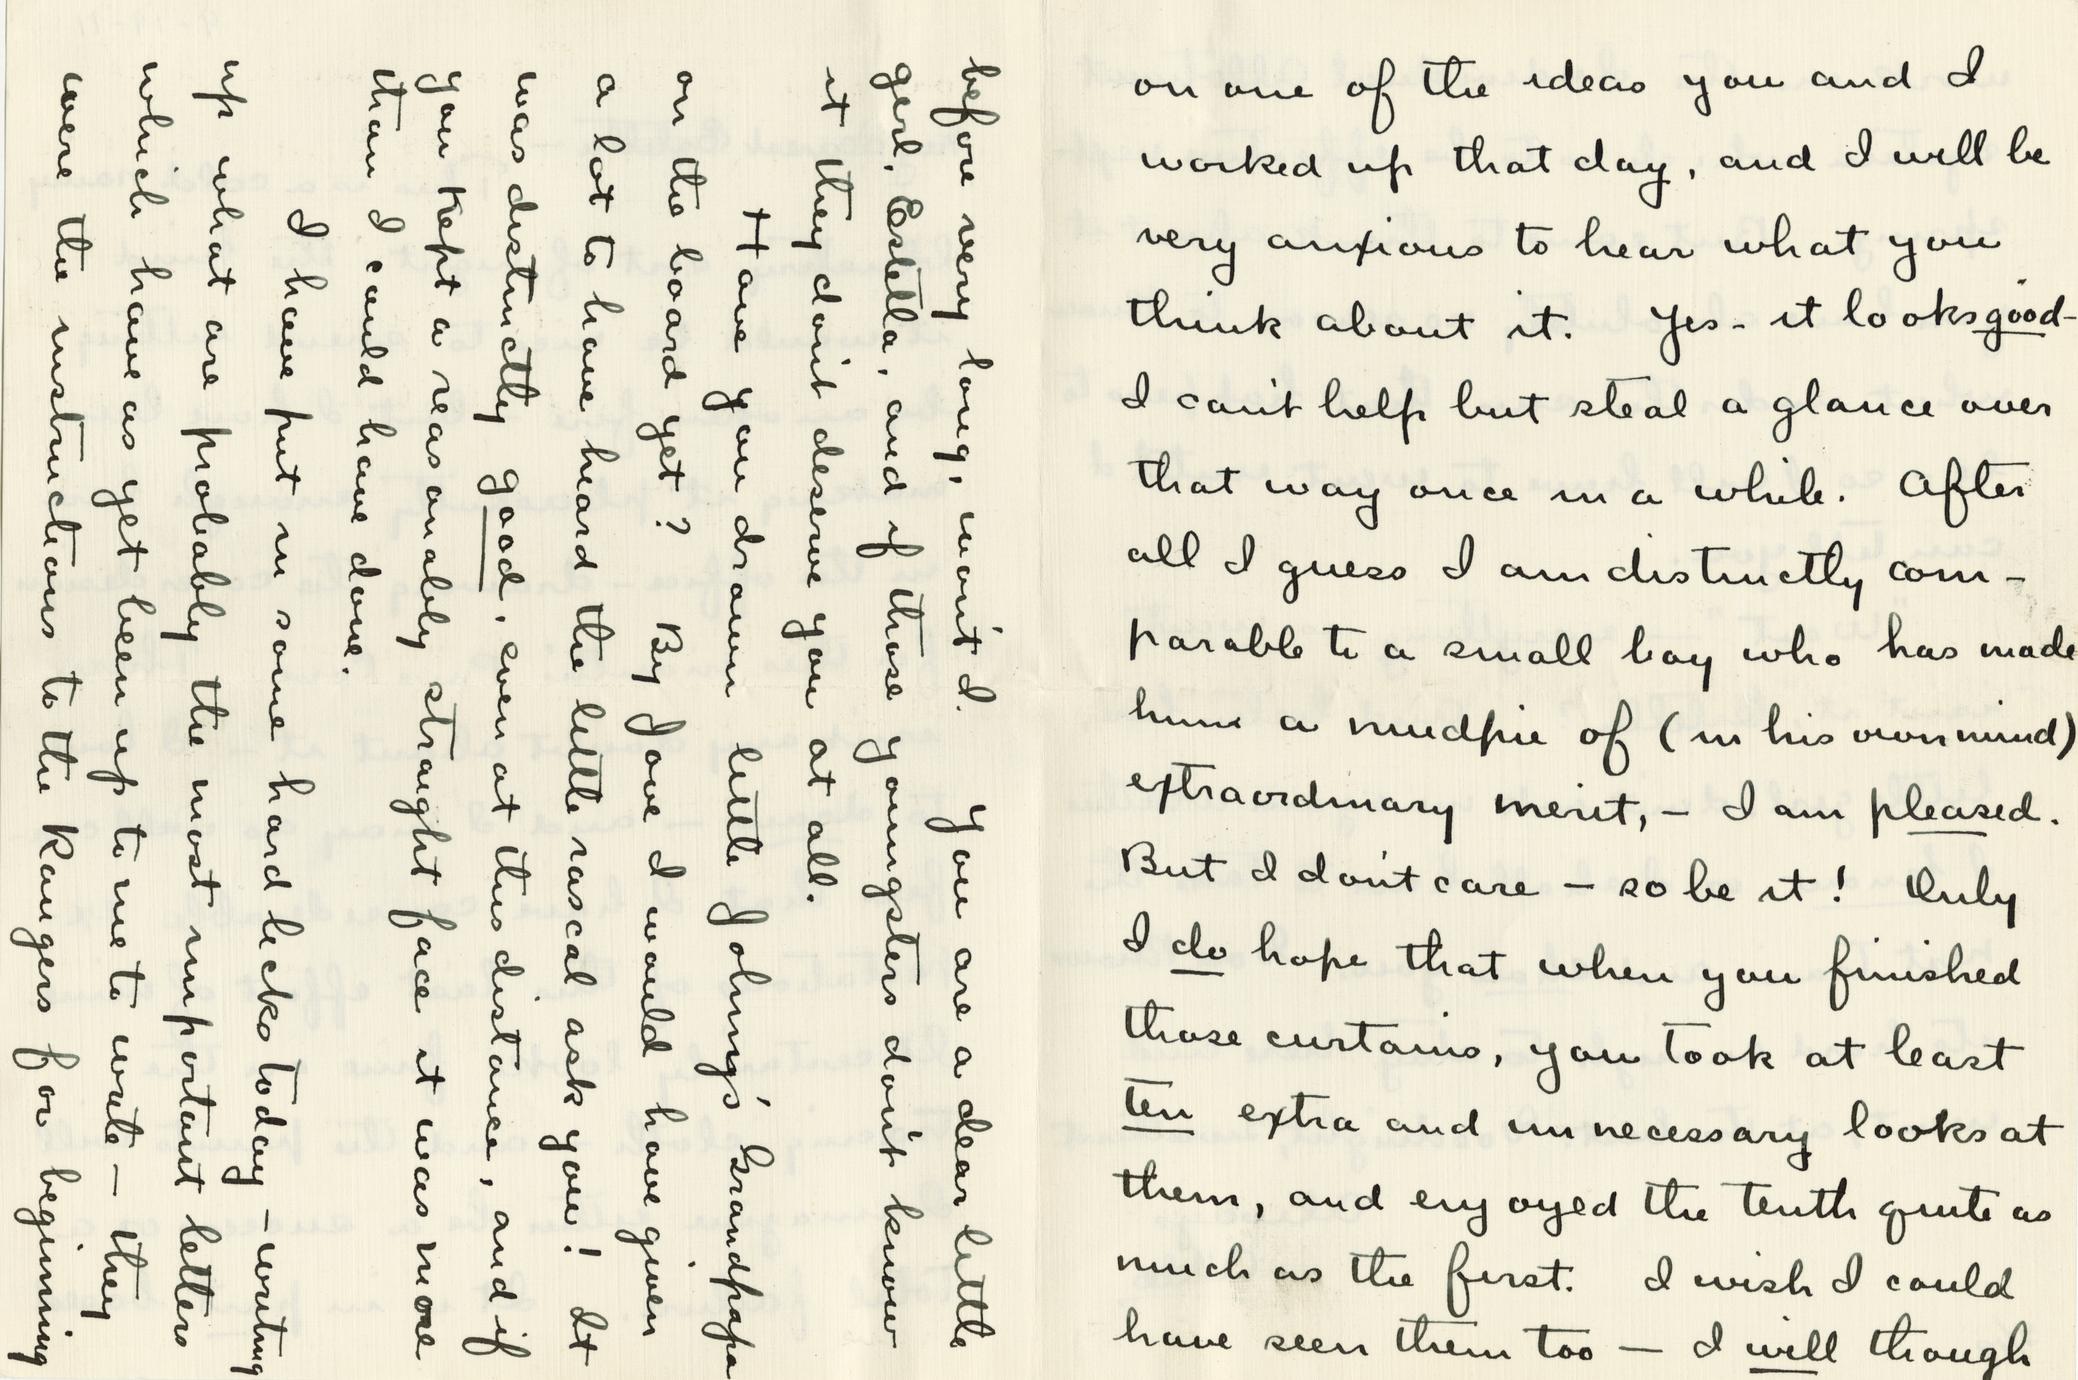 on one of the ideas you and I
worked up that day, and I will be
very anxious to hear what you
think about it. Yes - it looks good -
I can't help but steal a glance over
that way once in a while. After
all I guess I am distinctly com-
parable to a small boy who has made
him a mudpie of (in his own mind)
extraordinary merit, - I am pleased.
But I don't care - so be it! Truly
I do hope that when you finished
those curtains, you took at least
ten extra and unnecessary looks at
them, and enjoyed the tenth quite as
much as the first. I wish I could
have seen them too - I will though
before very long, won't I. You are a dear little
girl, Estella, and if those youngsters don't know
it they don't deserve you at all.
Have you drawn little Johnny's Grandpapa
on the board yet? By Jove I would have given
a lot to have heard the little rascal ask you! It
was distinctly good, even at this distance, and if
you kept a reasonably straight face it was more
than I could have done.
I have put in some hard licks today - writing
up what are probably the most important letters
which have as yet been up to me to write - they
were the instructions to the Rangers for beginning